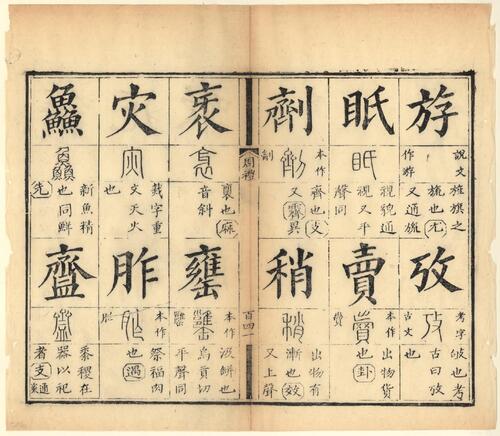 斿
說文旌旗之
旒也尤
又通旒
作游
攷
考字攱也考
古曰攷
古文也
眂
眂
視貌通
視又平
聲同
賣
本作出物貨
也卦
劑
本作齊也支
又霽異
稍
出物有
漸也效
又上聲
周禮
百四一
衺
裏也麻
音斜
罋
本作汲缾也
烏貢切
平聲同
灾
裁字重
文天火
也
胙
本作祭福肉
也遇
鱻
新魚精
也同鮮
先
齍
黍稷在
器以祀
者支通粢